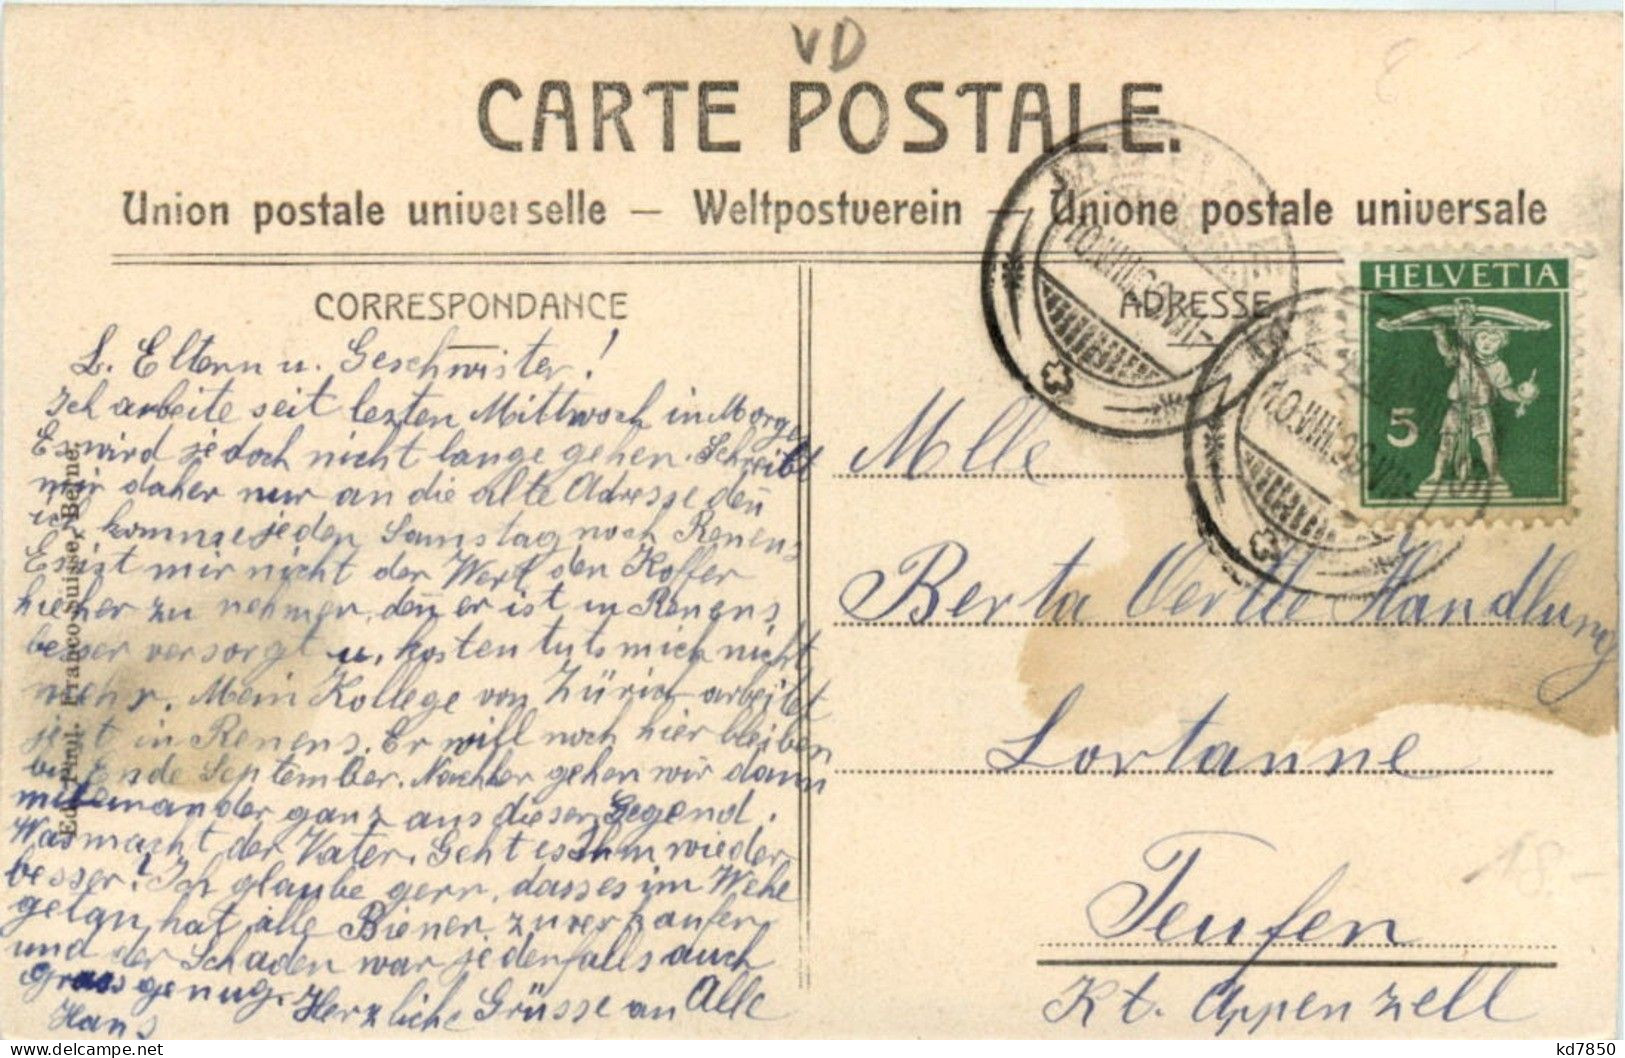 VD
CARTE POSTALE.
Union postale universelle — Weltpostverein — Unione postale universale
CORRESPONDANCE
ADRESSE
HELVETIA
5
10.VIII.
10.VIII.
L. Eltern u. Geschwister!
Ich arbeite seit lezten Mittwoch in Morges
Es wird jedoch nicht lange gehen. Schreibt
mir daher nur an die alte Adresse den̄
ich komme jeden Samstag noch Renens
Es ist mir nicht der Wert den Koffer
hieher zu nehmen, den̄ er ist in Renens
besser versorgt u. kosten tuts mich nicht
mehr. Mein Kollege von Zürich arbeitet
jezt in Renens. Er will noch hier bleiben
bis Ende September. Nachher gehen wir dann
miteinander ganz aus dieser Gegend.
Was macht der Vater. Geht es Ihm wieder
besser? Ich glaube gern, dass es im Wehe
getan hat alle Bienen zu verkaufen
und der Schaden war jedenfalls auch
gross genug. Herzliche Grüsse an Alle
Hans
Ed. Phot. Franco-Suisse, Berne.
Mlle
Berta Oertle Handlung
Lortanne
Teufen
Kt. Appenzell
18.-
kd7850